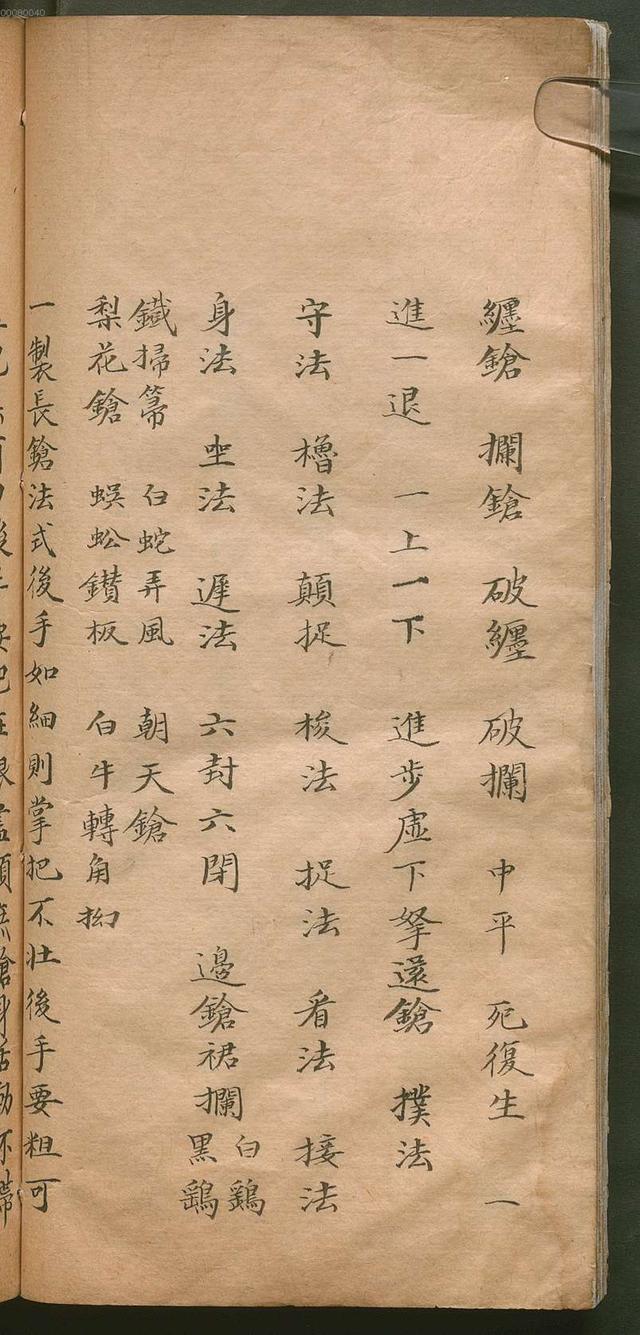 00080040
纏鎗 攔鎗 破纏 破攔 中平 死復生 一
進一退 一上一下 進步虛下拏還鎗 撲法
守法 櫓法 顛捉 梭法 捉法 看法 接法
身法 坐法 遲法 六封六閉 邊鎗裙攔 白鷂
黑鷂
鐵掃箒 白蛇弄風 朝天鎗
梨花鎗 蜈蚣鑽板 白牛轉角拗
一製長鎗法式後手如細則掌把不壯後手要粗可